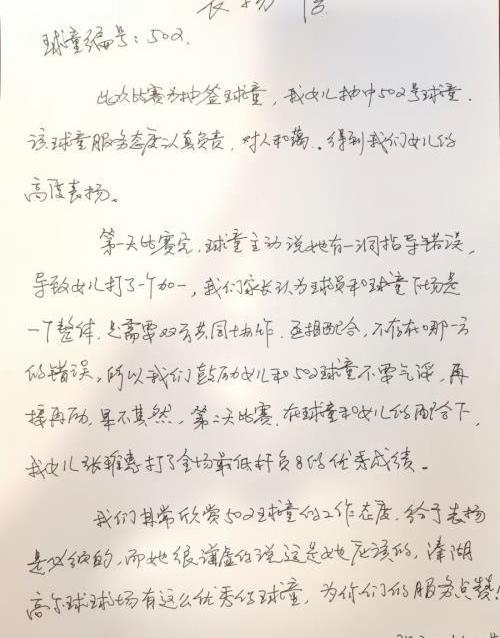 表扬信
球童编号:502.
此次比赛为抽签球童,我女儿抽中502号球童.
该球童服务态度认真负责,对人和蔼.得到我们女儿的
高度表扬。
第一天比赛完,球童主动说她有一洞指导错误,
导致女儿打了一个加一,我们家长认为球员和球童下场是
一个整体,是需要双方共同协作.互相配合,不存在哪一方
的错误,所以我们鼓励女儿和502球童不要气馁,再
接再励,果不其然,第二天比赛,在球童和女儿的配合下,
我女儿张雅惠打了全场最低杆负8的优秀成绩。
我们非常欣赏502球童的工作态度.给予表扬
是必须的,而她很谦虚的说这是她应该的,溱湖
高尔球球场有这么优秀的球童,为你们的服务点赞!